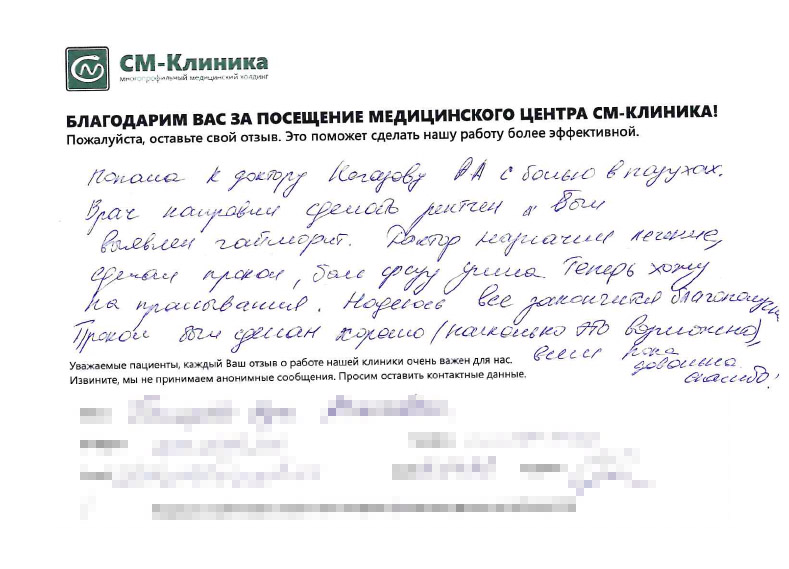 СМ-Клиника
многопрофильный медицинский холдинг
БЛАГОДАРИМ ВАС ЗА ПОСЕЩЕНИЕ МЕДИЦИНСКОГО ЦЕНТРА СМ-КЛИНИКА!
Пожалуйста, оставьте свой отзыв. Это поможет сделать нашу работу более эффективной.
Попала к доктору РА с болью в пазухах.
Врач направил сделать рентген и был
выявлен гайморит. Доктор назначил лечение,
сделал прокол, боль сразу ушла. Теперь хожу
на промывания. Надеюсь все закончится благополучно
Прокол был сделан хорошо (насколько это возможно),
всем пока
довольна.
спасибо!
Уважаемые пациенты, каждый Ваш отзыв о работе нашей клиники очень важен для нас.
Извините, мы не принимаем анонимные сообщения. Просим оставить контактные данные.